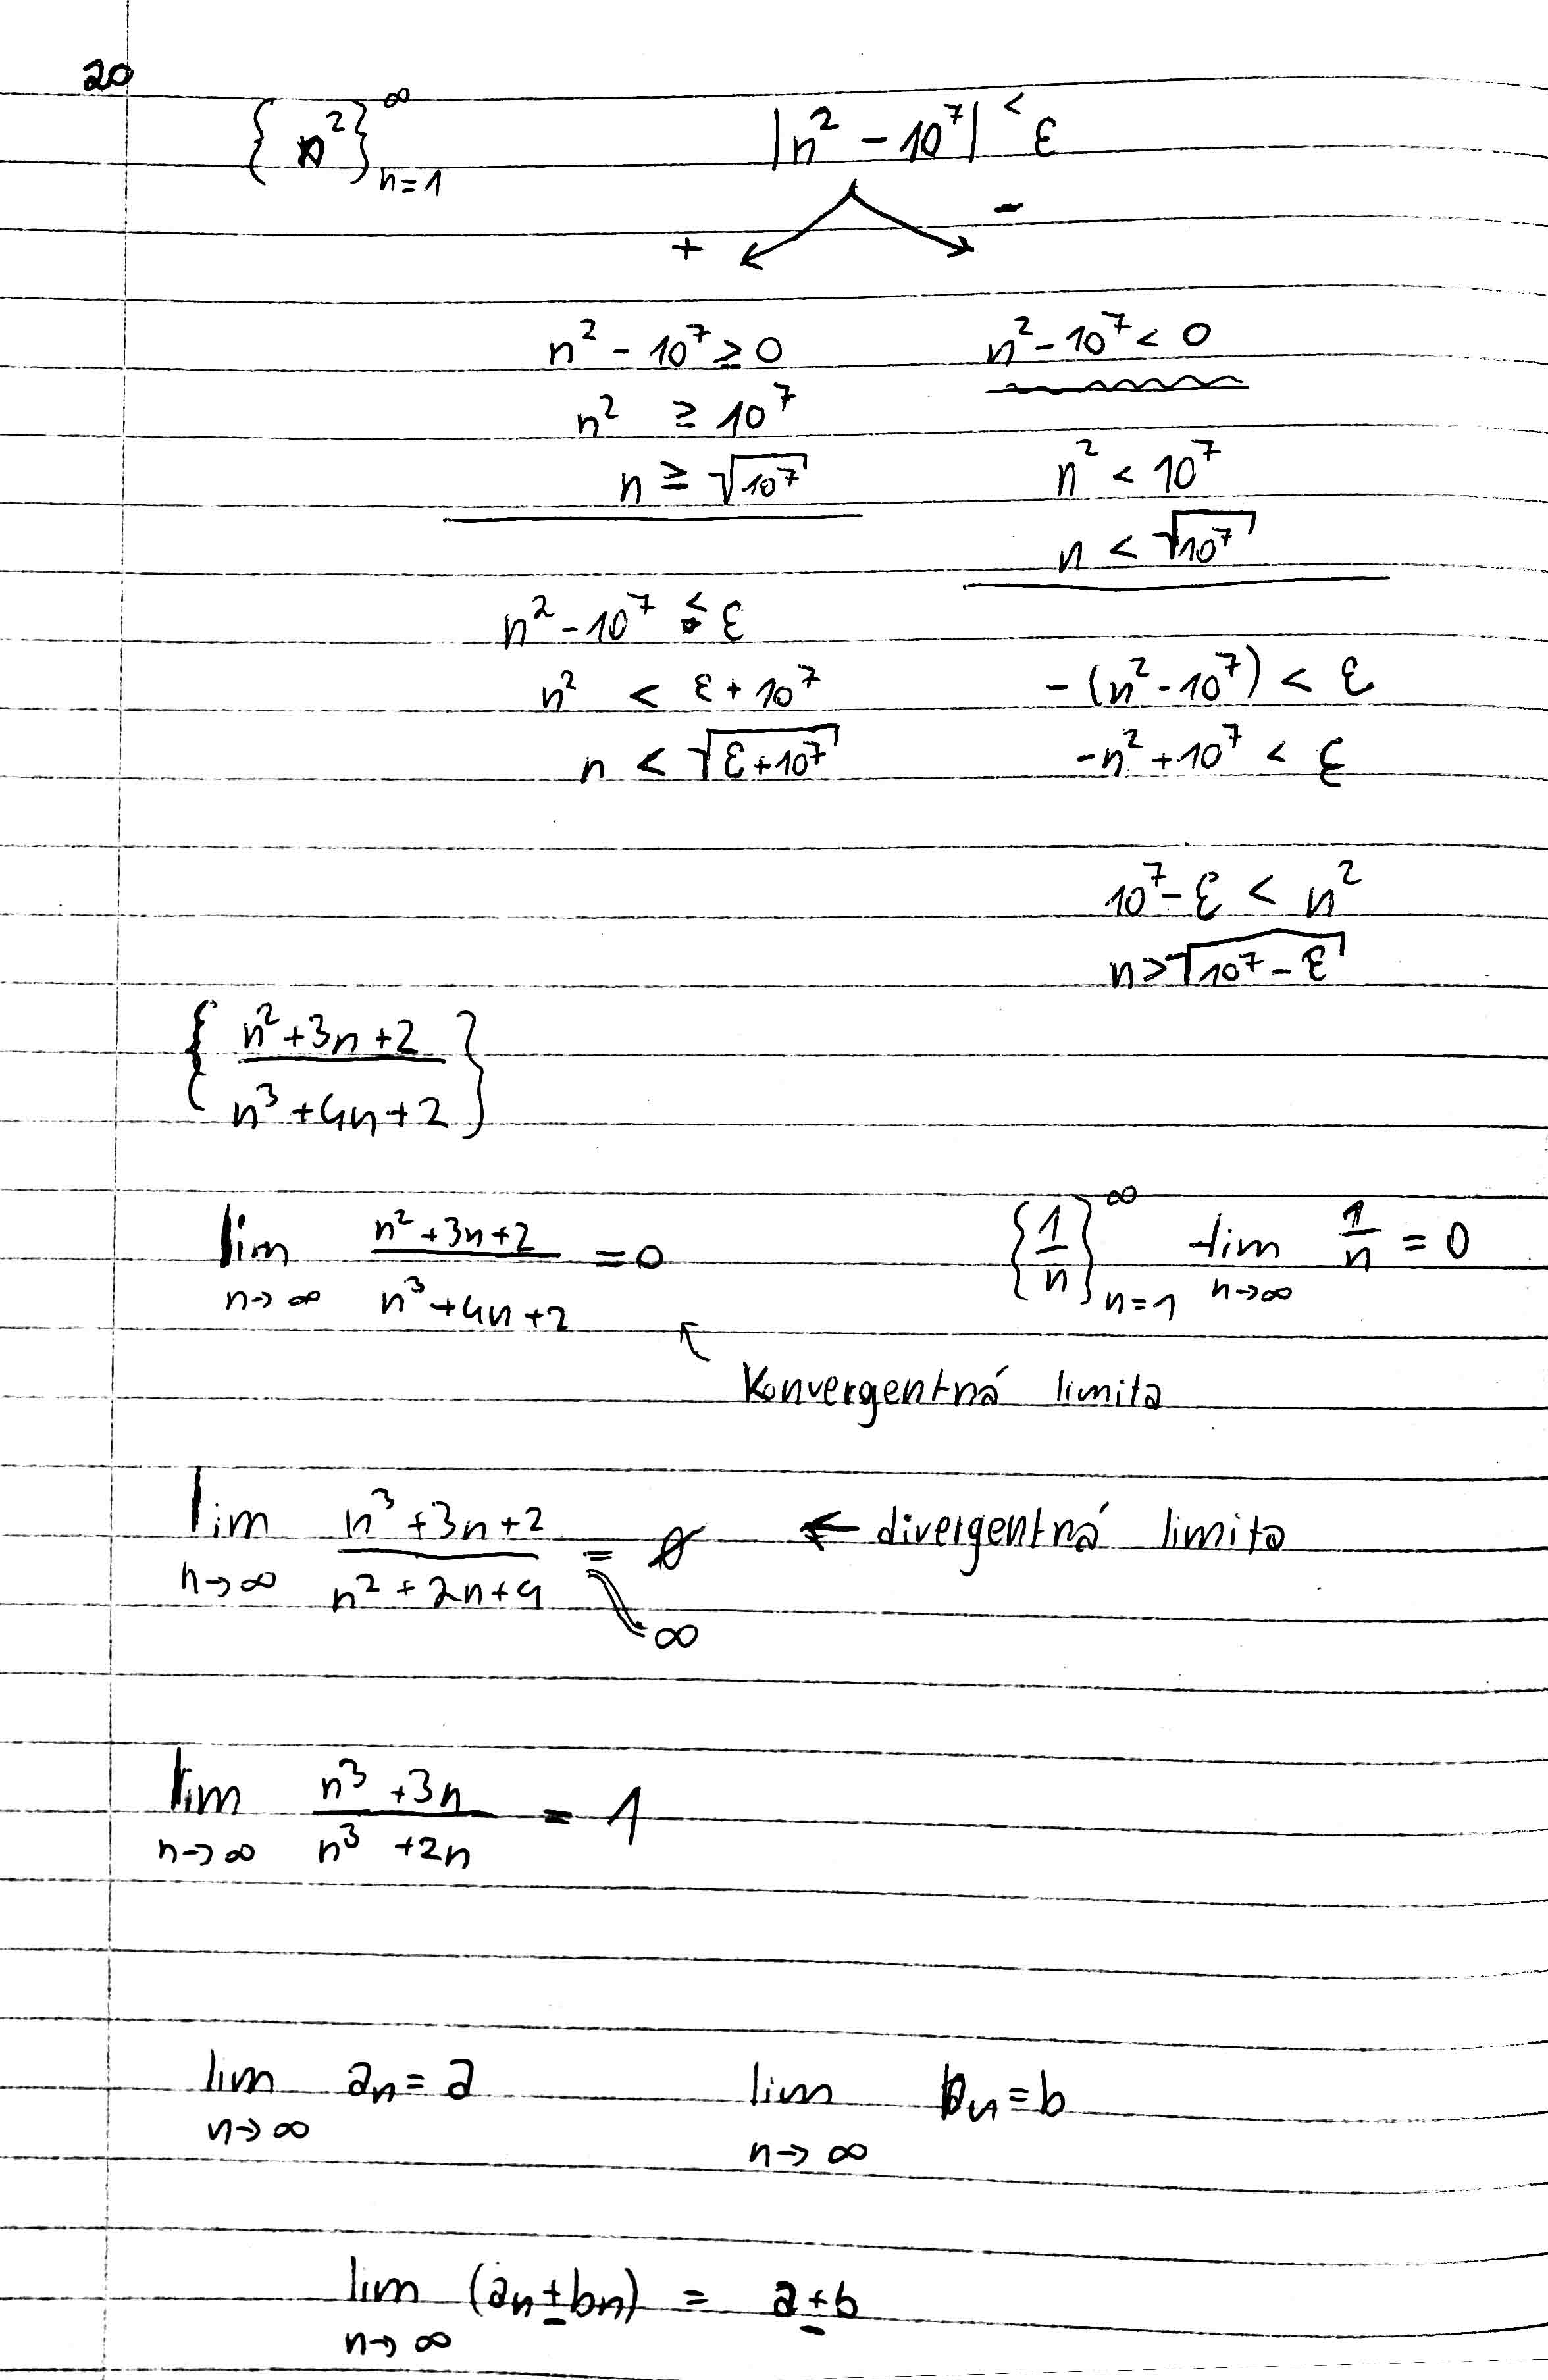 20
{n²}_{n=1}^{∞}    |n² - 10⁷| < ε
+    -
n² - 10⁷ ≥ 0    n² - 10⁷ < 0
n² ≥ 10⁷
n ≥ √10⁷    n² < 10⁷
n < √10⁷
n² - 10⁷ < ε
n² < ε + 10⁷    -(n² - 10⁷) < ε
n < √(ε + 10⁷)    -n² + 10⁷ < ε
10⁷ - ε < n²
n > √(10⁷ - ε)
{(n² + 3n + 2)/(n³ + 4n + 2)}
lim_{n→∞} (n² + 3n + 2)/(n³ + 4n + 2) = 0    {1/n}_{n=1}^{∞}    lim_{n→∞} 1/n = 0
↖ Konvergentná limita
lim_{n→∞} (n³ + 3n + 2)/(n² + 2n + 4) = ∞    ← divergentná limita
lim_{n→∞} (n³ + 3n)/(n³ + 2n) = 1
lim_{n→∞} aₙ = a    lim_{n→∞} bₙ = b
lim_{n→∞} (aₙ ± bₙ) = a ± b